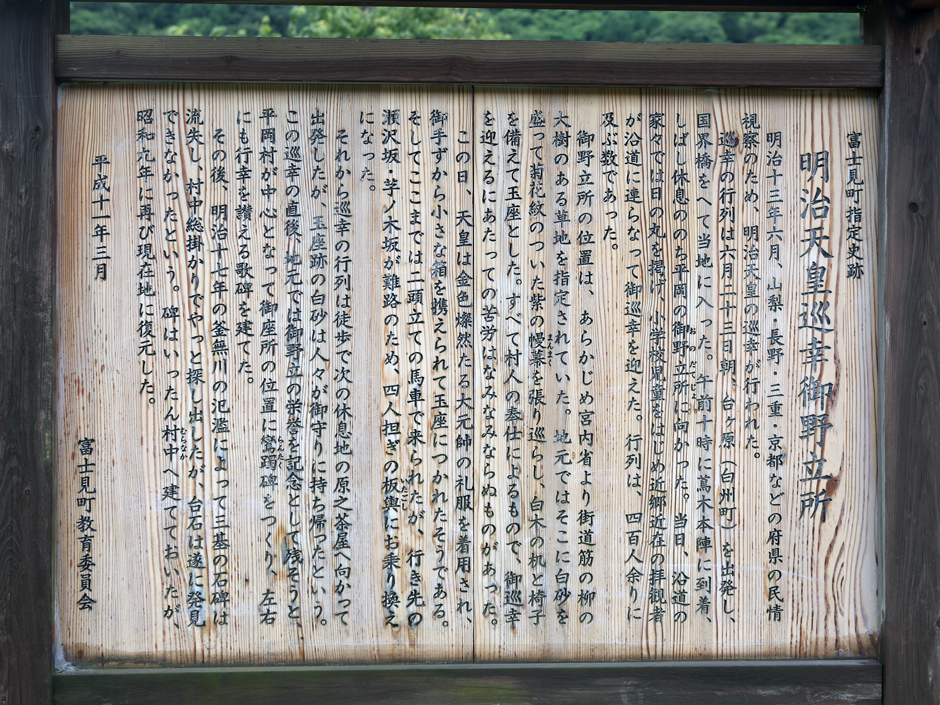 富士見町指定史跡
明治天皇巡幸御野立所
明治十三年六月、山梨・長野・三重・京都などの府県の民情
視察のため、明治天皇の巡幸が行われた。
巡幸の行列は六月二十三日朝、台ヶ原（白州町）を出発し、
国界橋をへて当地に入った。午前十時に蔦木本陣に到着、
しばし休息ののち平岡の御野立所に向かった。当日、沿道の
おのだてしょ
家々では日の丸を掲げ、小学校児童をはじめ近郷近在の拝観者
が沿道に連らなって御巡幸を迎えた。行列は、四百人余りに
及ぶ数であった。
御野立所の位置は、あらかじめ宮内省より街道筋の柳の
大樹のある草地を指定されていた。地元ではそこに白砂を
盛って菊花紋のついた紫の幔幕を張り巡らし、白木の机と椅子
まんまく
を備えて玉座とした。すべて村人の奉仕によるもので、御巡幸
を迎えるにあたっての苦労はなみなみならぬものがあった。
この日、天皇は金色燦然たる大元帥の礼服を着用され、
御手ずから小さな箱を携えられて玉座につかれたそうである。
そしてここまでは二頭立ての馬車で来られたが、行き先の
瀬沢坂・芋ノ木坂が難路のため、四人担ぎの板輿にお乗り換え
いたごし
になった。
それから巡幸の行列は徒歩で次の休息地の原之茶屋へ向かって
出発したが、玉座跡の白砂は人々が御守りに持ち帰ったという。
この巡幸の直後、地元では御野立の栄誉を記念として残そうと、
平岡村が中心となって御座所の位置に駕躅碑をつくり、左右
にも行幸を讃える歌碑を建てた。
その後、明治十七年の釜無川の氾濫によって三基の石碑は
流失し、村中総掛かりでやっと探し出したが、台石は遂に発見
できなかったという。碑はいったん村中へ建てておいたが、
むらなか
昭和元年に再び現在地に復元した。
平成十一年三月
富士見町教育委員会